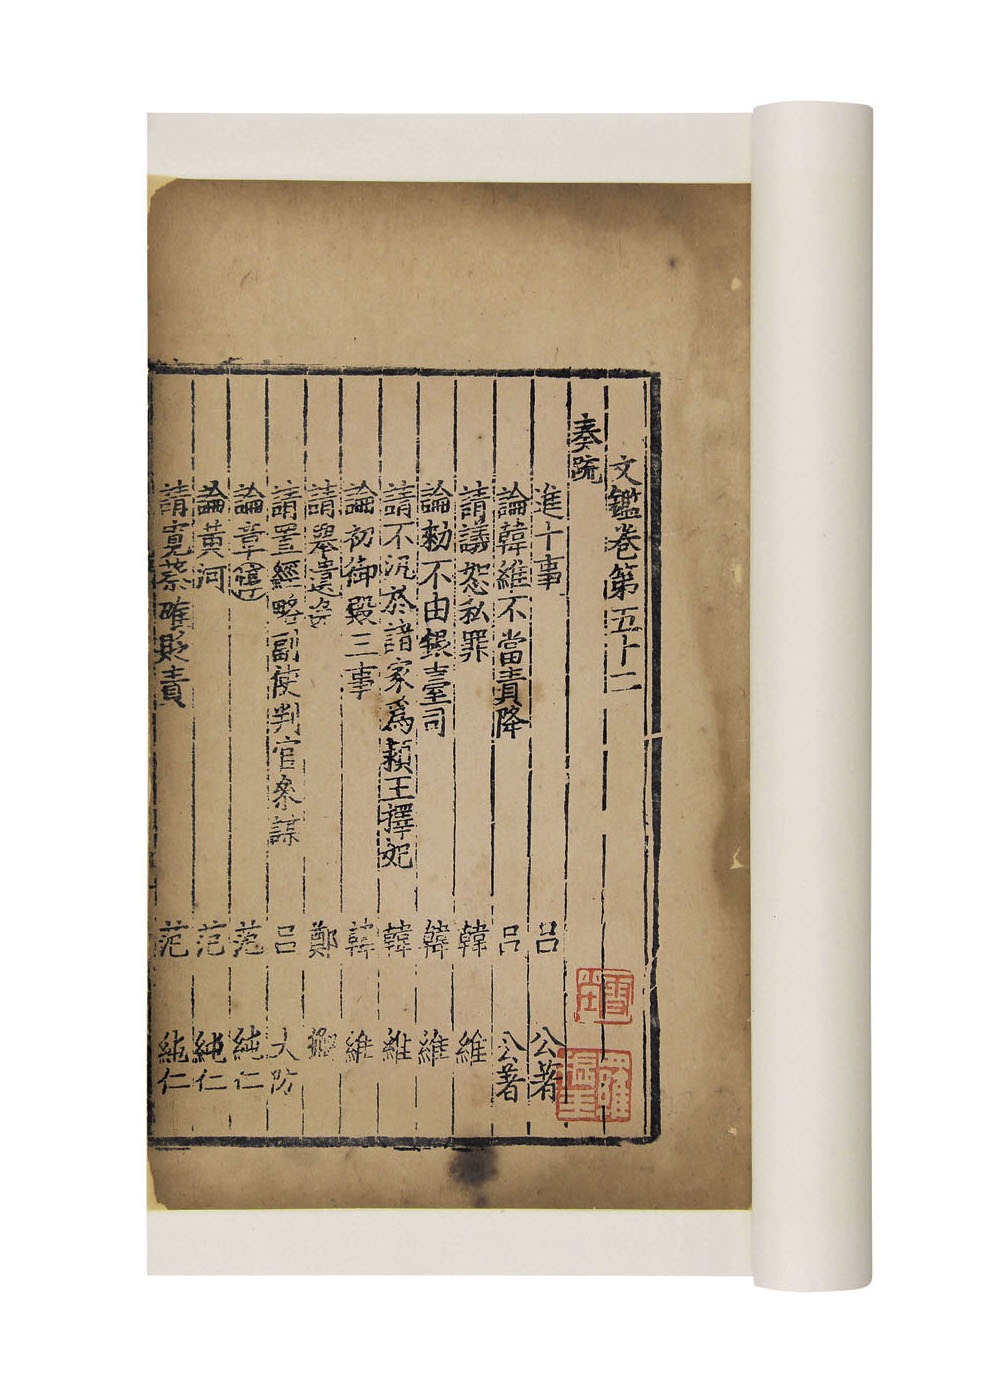 文鑑卷第五十二
奏疏
進十事 呂 公著
論韓維不當責降 呂 公著
請議恕私罪 韓 維
論勑不由銀臺司 韓 維
請不汎於諸家爲穎王擇妃 韓 維
論初御殿三事 韓 維
請舉遺逸 鄭 獬
請置經略副使判官參謀 呂 大防
論章惇 范 純仁
論黃河 范 純仁
請寬蔡確貶責 范 純仁
雪
羅